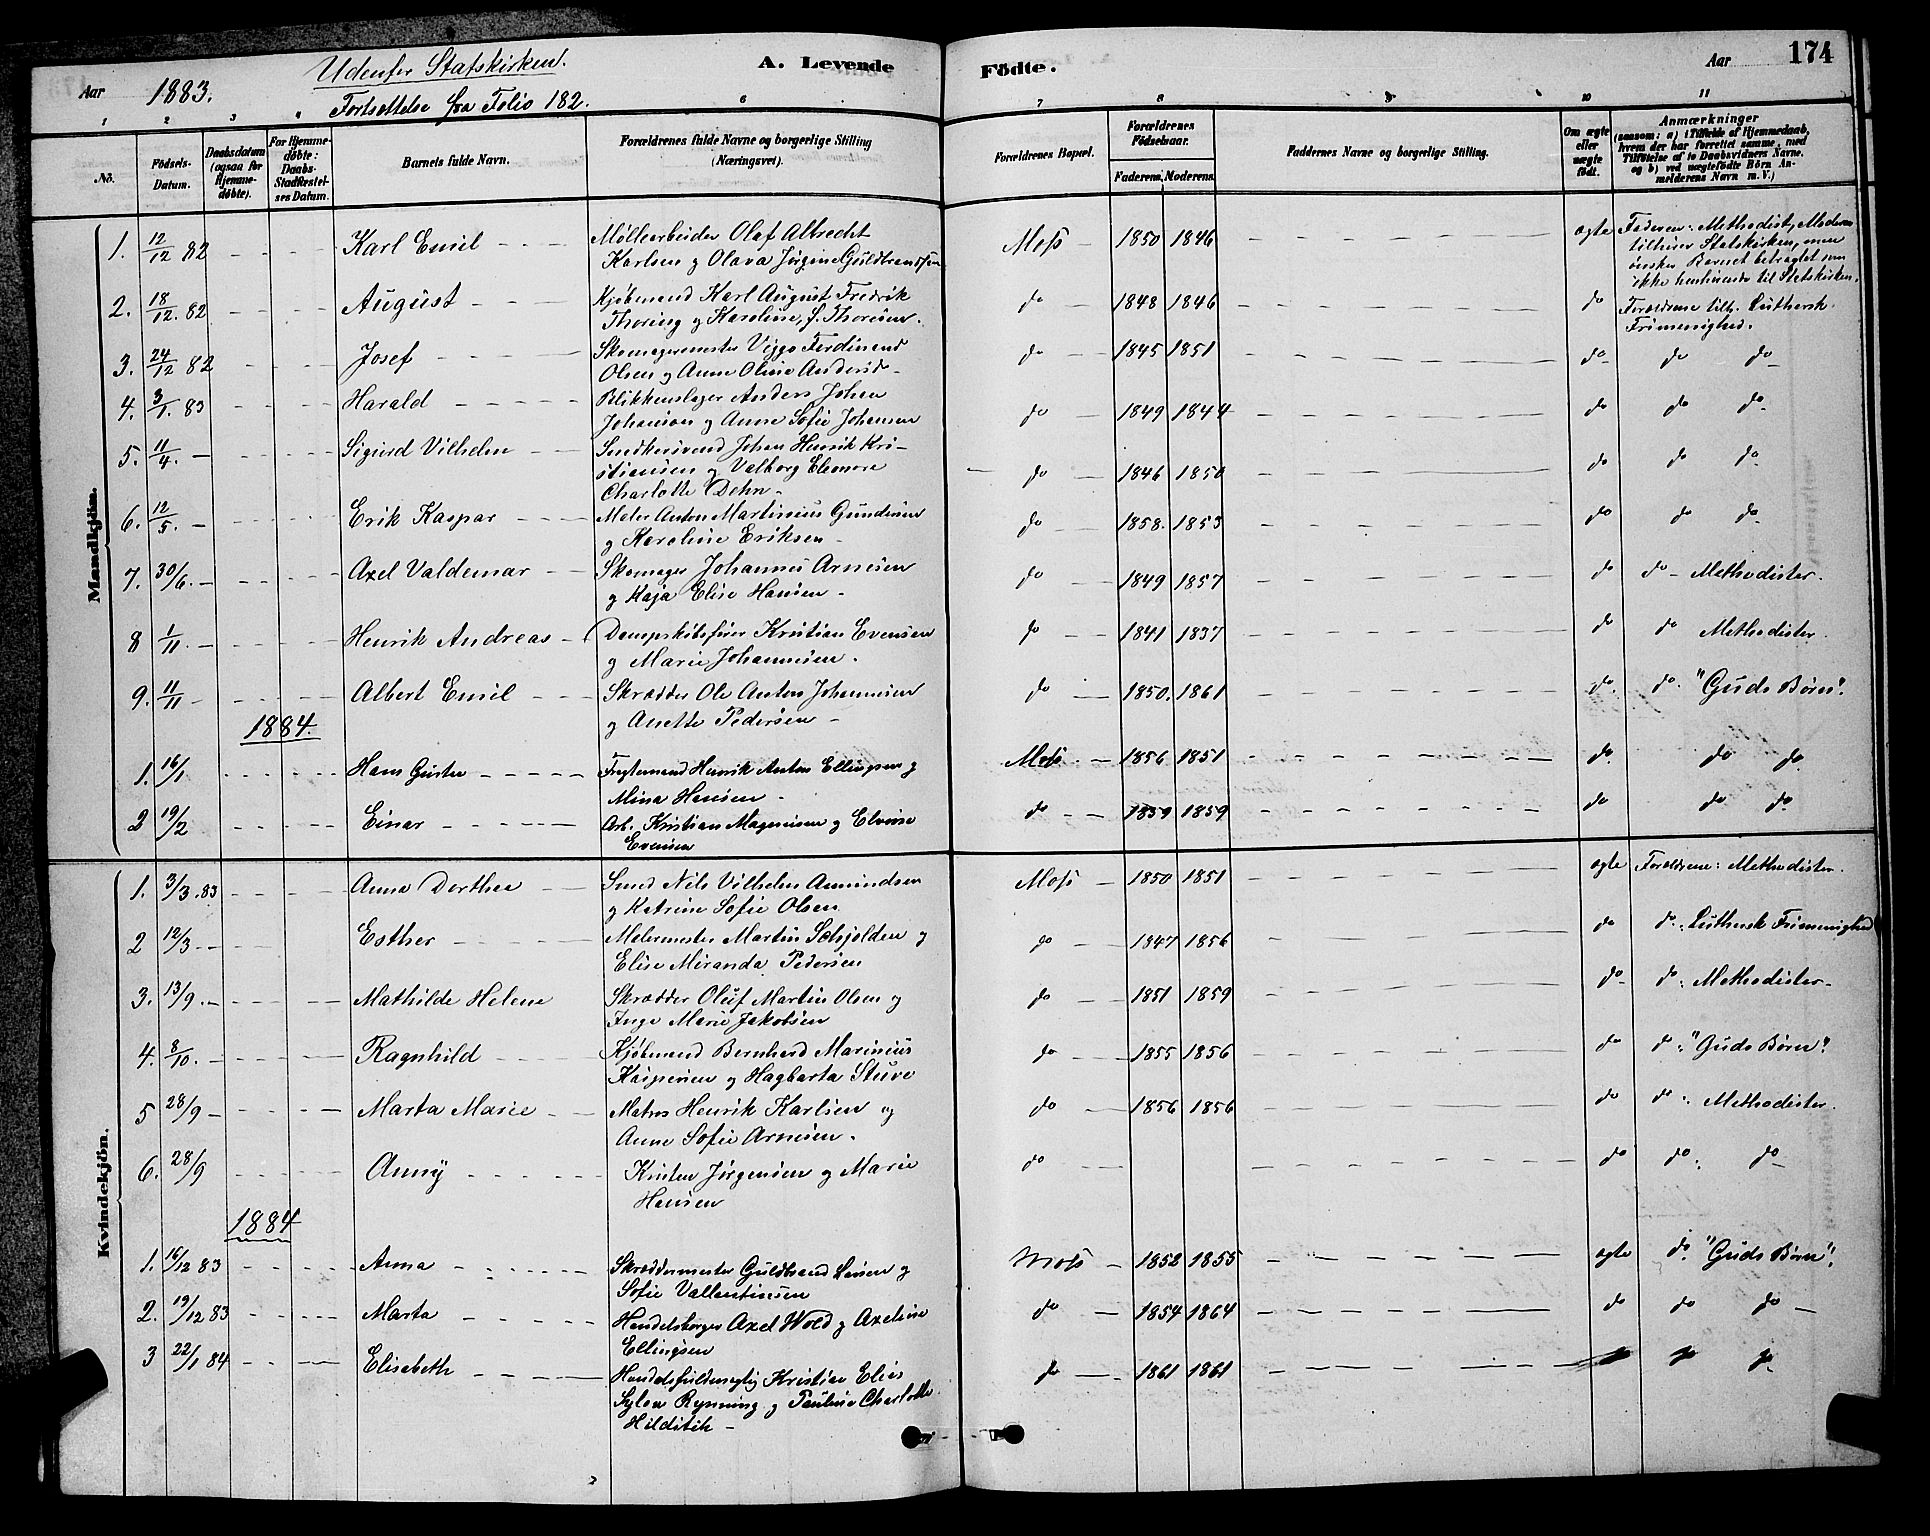 Udenfor Statskirken.
A. Levende Födte.
Aar 1883.
Fortsættelse fra Folio 182.
Aar 174
1 2 3 4 6 7 8 9 10 11
No.
Födsels-
Datum.
Daabsdatum
(ogsaa for
Hjemme-
döbte).
For Hjemme-
döbte:
Daabs-
Stadfæstel-
ses Datum.
Barnets fulde Navn.
Forældrenes fulde Navne og borgerlige Stilling
(Næringsvei).
Forældrenes Bopæl.
Forældrenes
Födselsaar.
Faderens. Moderens.
Faddernes Navne og borgerlige Stilling.
Om ægte
eller
uægte
födt.
Anmærkninger
(saasom: a) i Tilfælde af Hjemmedaab,
hvem der har forrettet samme, med
Tilföielse af to Daabsvidners Navne,
og b) ved uægtefödte Börn An-
melderens Navn m. V.)
Mandkjön.
1. 12/12 82 Karl Emil Møllearbeider Olaf Albrecht
Karlsen og Olava Jørgine Guldbrandsen
Moss 1850 1846 ægte Faderen: Methodist, Moderen
tilhører Statskirken, men
ønsker Barnet betragtet som
ikke henhørende til Statskirken.
2. 18/12 82 August Kjøbmand Karl August Fredrik
Thoring og Karoline, f. Thoresen.
do 1848 1846 do Forældrene tilh. Luthersk
Frimenighed.
3. 24/12 82 Josef Skomagermester Viggo Ferdinand
Olsen og Anne Oline Andersd.
do 1845 1851 do do do
4. 3/1. 83 Harald Blikkenslager Anders Johan
Johansen og Anne Sofie Johansen
do 1849 1844 do do do
5. 11/4. Sigurd Vilhelm Snedkersvend Johan Henrik Kri-
stiansen og Valborg Eleonore
Charlotte Dehn
do 1846 1850 do do do
6. 12/5. Erik Kaspar Maler Anton Martinius Gundersen
og Karoline Eriksen
do 1858. 1853 do do do
7. 30/6. Axel Valdemar Skomager Johannes Arnesen
og Kaja Elise Hansen
do 1849 1857 do do Methodister.
8 1/11 Henrik Andreas Dampskibsfører Kristian Evensen
og Marie Johannesen.
do 1841 1837 do do Methodister.
9. 11/11 Albert Emil Skrædder Ole Anton Johannesen
og Anette Pedersen
do 1850. 1861 do. do. "Guds Børn".
1884.
1. 16/1 Hans Gustav Fragtemand Henrik Anton Ellingsen og
Mina Hansen
Moss. 1856 1851 do. do do.
2 19/2 Einar Arb. Kristian Magnusen og Elvine
Evensen
do 1859 1859 do do do
Kvindekjön.
1. 3/3. 83 Anna Dorthea Smed Nils Vilhelm Amundsen
og Katrine Sofie Olsen
Moss 1850 1851 ægte Forældrene: Methodister.
2 12/3 Esther Malermester Martin Schjolden og
Elise Miranda Pedersen
do 1847 1856 do do: Luthersk Frimenighed
3. 13/9. Mathilde Helene Skrædder Oluf Martin Olsen og
Inge Marie Jakobsen
do 1851 1859 do do: Methodister
4. 8/10. Ragnhild Kjøbmand Bernhard Marinius
Kaspersen og Hagbarta Stuve
do 1855 1856 do do: "Guds Børn".
5 28/9 Marta Marie Matros Henrik Karlsen og
Anne Sofie Arnesen.
do 1856 1856 do do: Methodister.
6. 28/9 Anny Kristen Jørgensen og Marie
Hansen
do do do: do
1884
1. 16/12 83 Anna Skræddermester Guldbrand Larsen og
Sofie Vallentinsen
Moss 1852 1855 ægte do. "Guds Børn".
2. 19/12 83 Marta Handelsborger Axel Wold og Axeline
Ellingsen
do 1854 1864 do do do
3 22/1 84 Elisabeth Handelsfuldmægtig Kristian Elias
Sylou Rynning og Pauline Charlotte
Hilditch
do 1861 1861 do do do